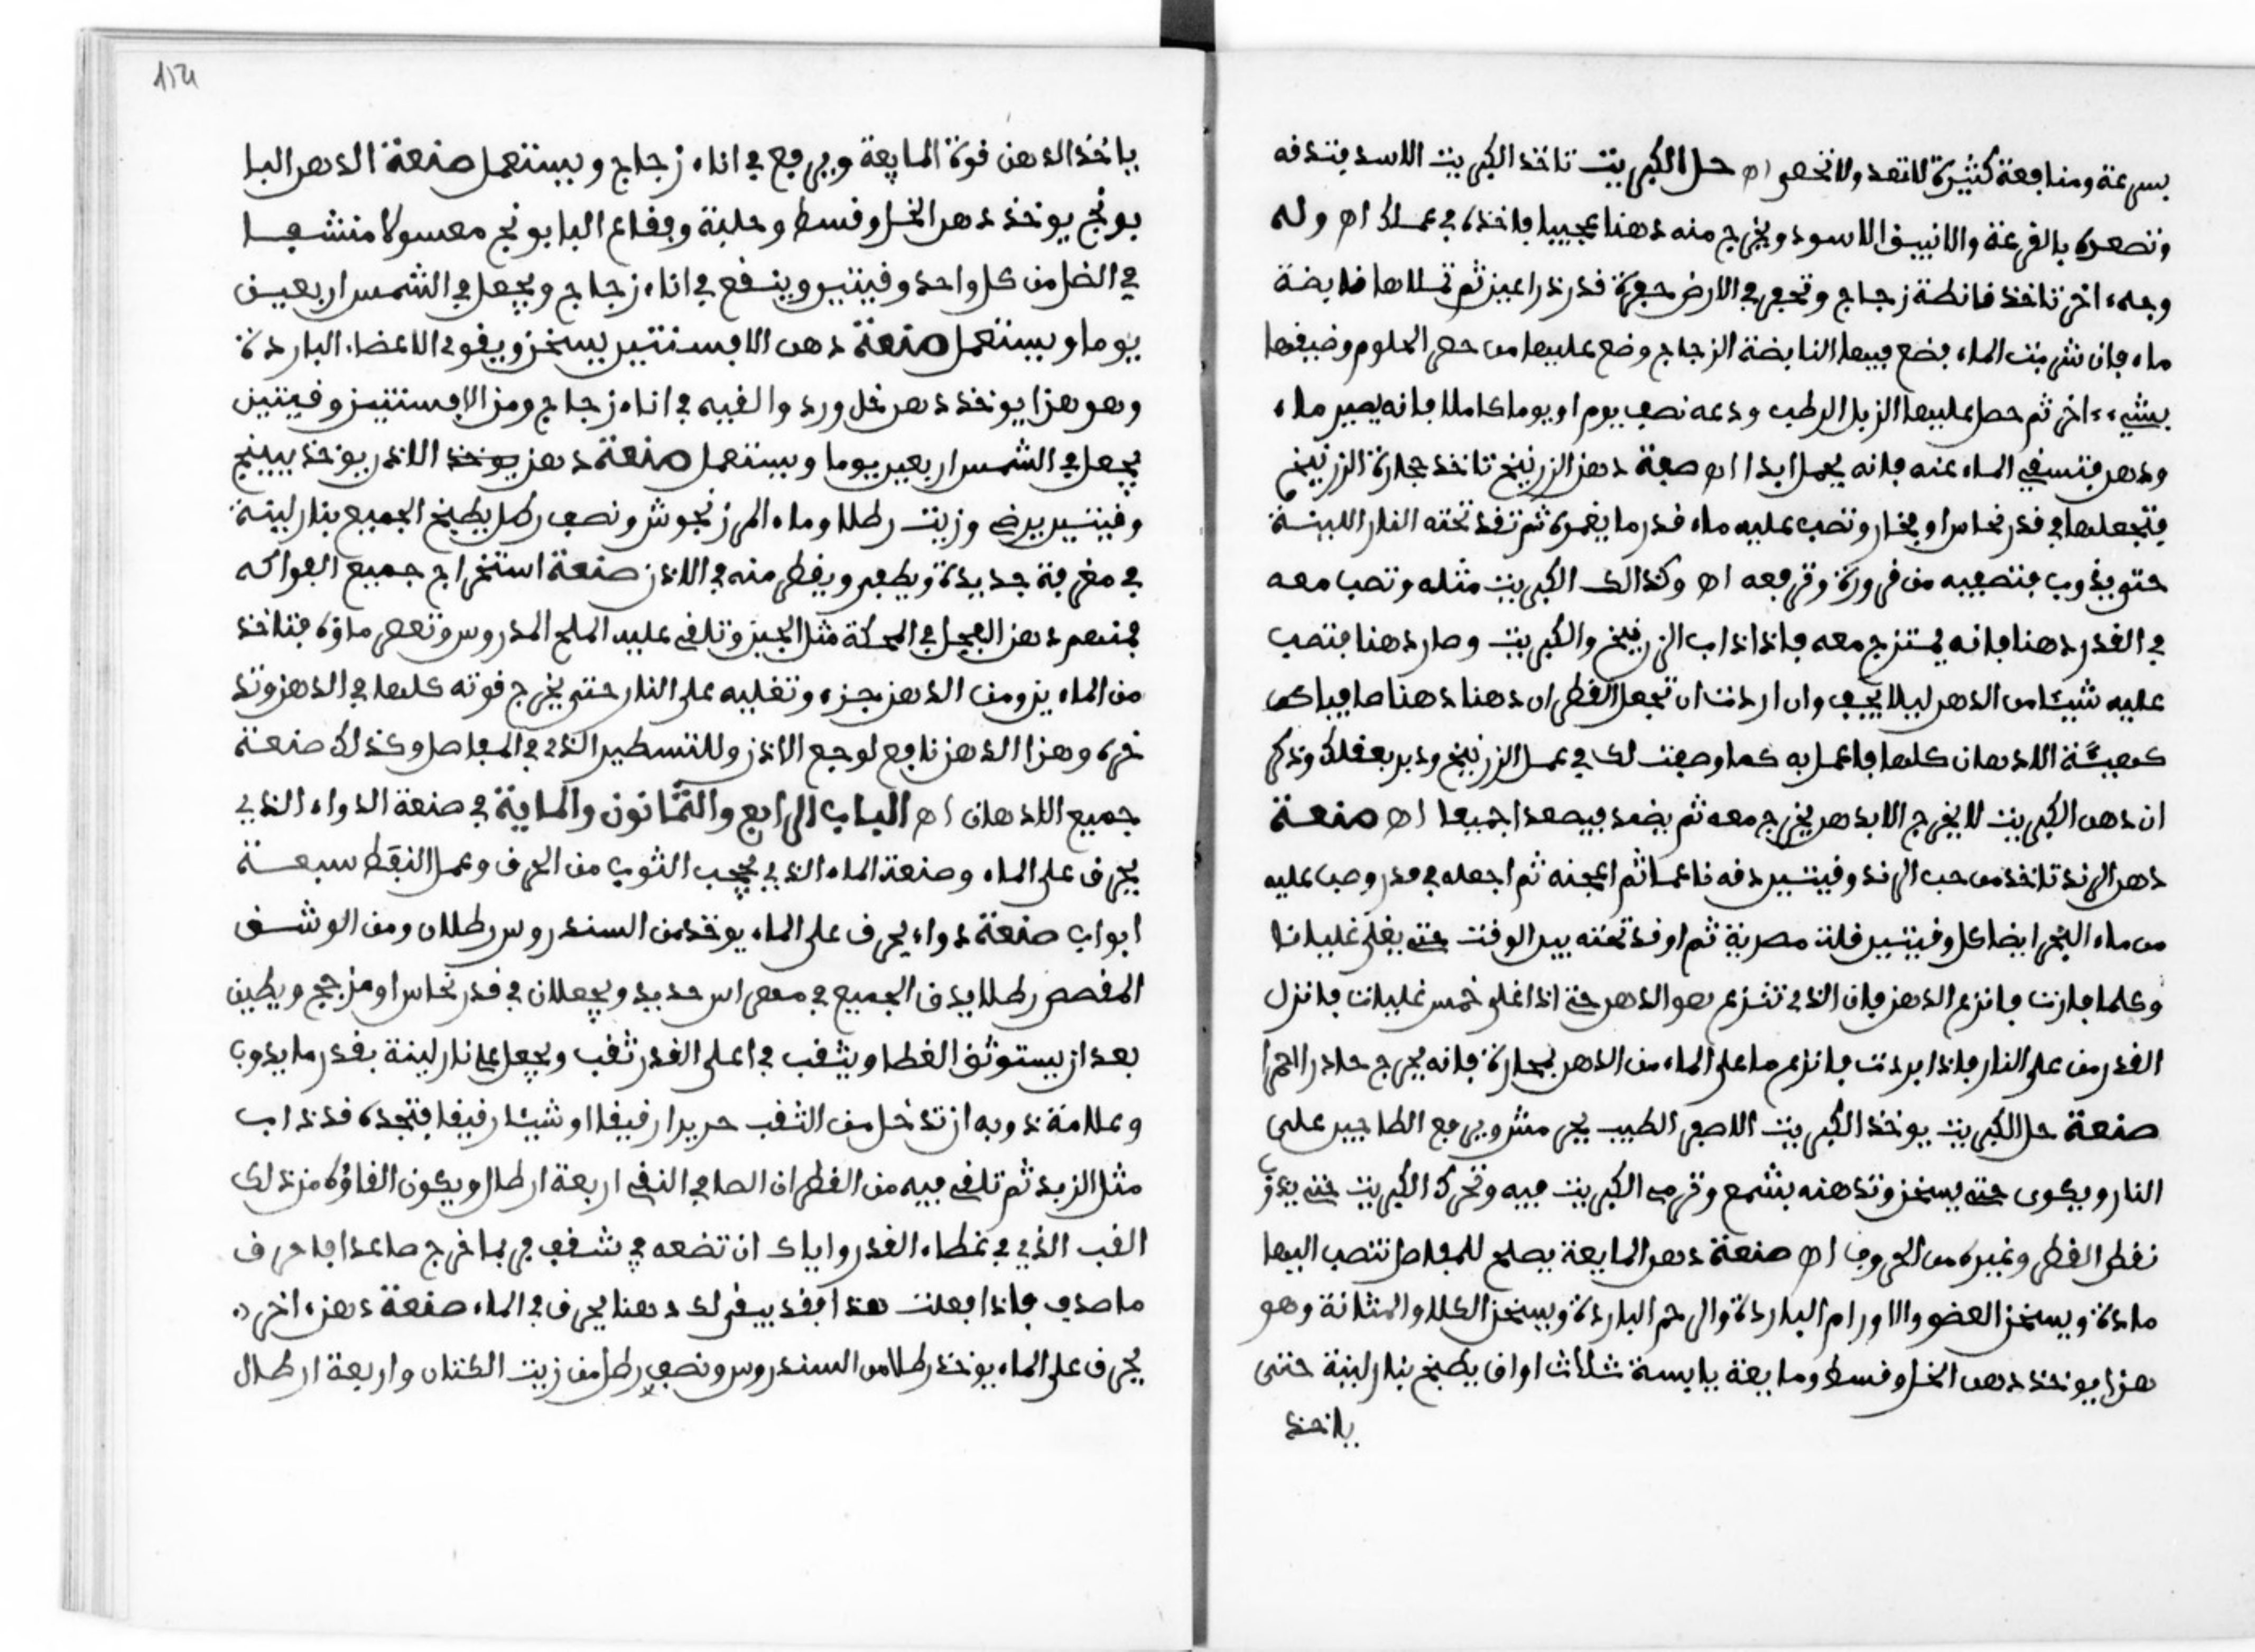 بسرعة ومنافعة كثيرة لا تعد ولا تحصى اه حل الكبريت تاخذ الكبريت الاسد فتدفه
وتصعده بالقرعة والانبيق الاسود ويخرج منه دهنا عجيبا فاخذه في عملك اه وله
وجه اخر تاخذ زجاج وتحفر في الارض حفرة قدر ذراعين ثم تملاها
ماء فان شربت الماء فضع فيها الزجاج وضع عليها من
بشيء اخر ثم حصل عليها الزبل الرطب ودعه نصف يوم او يوما كاملا فانه يصير ماء
ودهن فتسقي الماء عنه فانه يحمل ابدا اه صفة دهن الزرنيخ تاخذ حجارة الزرنيخ
فتجعلها في قدر نحاس او فخار وتصب عليه ماء قدر ما يغمره ثم تقد تحته النار اللينة
حتى يذوب فتصفيه من قرورة وترفعه اه وكذالك الكبريت مثله وتصب معه
في القدر دهنا فانه يمتزج معه فاذا ذاب الزرنيخ والكبريت وصار دهنا فتصب
عليه شيئا من الدهن ليلا يجف وان اردت ان تجعل القطران دهنا دهنا صافيا كن
كهيئة الادهان كلها فاعمل به كما وصفت لك في عمل الزرنيخ ودبر بعقلك وذكر
ان دهن الكبريت لا يخرج الا بدهن يخرج معه ثم يضمد فيصعدا جميعا اه صنعة
دهن الرند تاخذ من حب الرند وقيتين دفه ناعما ثم اعجنه ثم اجعله في قدر وصب عليه
من ماء البحر ايضا كل وقيتين قلت مصرية ثم اوقد تحته بين الوقت حتى يغلي غليانا
وكلما فارت فانزع الدهن فان الذي تنزع هو الدهن حتى اذا غلى خمس غليات فانزل
القدر من على النار فاذا بردت فانزع ما على الماء من الدهن بمحارة فانه يخرج
صنعة حل الكبريت يوخذ الكبريت الاصفر الطيب ويرفع الطاجين على
النار ويكون حتى يسخن وتدهنه بشمع وترمي الكبريت فيه وتحرك الكبريت حتى يذوب
نقطر القطر وغيره من الحروف اه صنعة دهن المايعة يصلح للمفاصل تنصب اليها
مادة ويسخن العضو والاورام الباردة والرحم الباردة ويسخن الكلا والمثانة وهو
هزا يوخذ دهن الخل وقسط ومايعة يابسة ثلاث اواق يطبخ بنار لينة حتى
ياخذ
ياخذ الدهن قوة المايعة ويرفع في اناء زجاج ويستعمل صنعة الدهن البا
بونج يوخذ دهن الخل وقسط وحلبة وفقاع البابونج مغسولا منشفا
في الظل من كل واحد وقيتين وينقع في اناء زجاج ويجعل في الشمس اربعين
يوما ويستعمل صنعة دهن الافسنتين يسخن ويقوي الاعضاء الباردة
وهو هزا يوخذ دهن خل ورد والقيه في اناء زجاج ومن الافسنتين وقيتين
يجعل في الشمس اربعين يوما ويستعمل صنعة دهن يوخذ الاذن يوخذ
وقيتين وزيت رطلا وماء المرزنجوش ونصف رطل يطبخ الجميع بنار لينة
في مغرفة جديدة ويطفى ويقطر منه في الاذن صنعة استخراج جميع الفواكه
فمنهم دهن الفجل في المحكة مثل الجبن وتلقي عليه الملح المدروس وتعصر ماؤه فتاخذ
من الماء جزء ومن الدهن جزء وتغليه على النار حتى يخرج قوته كلها في الدهن وتد
خره وهزا الدهن نافع لوجع الاذن وللتسطير الذي في المفاصل وكذلك صنعة
جميع الادهان اه الباب الرابع والثمانون والماية في صنعة الدواء الذي
يحرق على الماء وصنعة الماء الذي يحجب الثوب من الحرق وعمل النفط سبعة
ابواب صنعة دواء يحرق على الماء يوخذ من السندروس رطلان ومن الوشق
رطلا يدق الجميع في مهراس حديد ويجعلان في قدر نحاس او مزجج ويطين
بعد ان يستوثق الغطا ويثقب في اعلى القدر ثقب ويجعل على نار لينة بقدر ما يذوب
وعلامة ذوبه ان تدخل من الثقب حريرا رقيقا او شيئا رقيقا فتجده قد ذاب
مثل الزبد ثم تلقي فيه من القطران الصافي النقي اربعة ارطال ويكون القاؤه من ذلك
القب الذي في غطاء القدر واياك ان تضعه في شقف فربما خرج صاعدا فاحرق
ما صدف فاذا فعلت هذا فقد بيقى لك دهنا يحرق في الماء صنعة دهن اخر
يحرق على الماء يوخذ رطلا من السندروس ونصف رطل من زيت الكتان واربعة ارطال